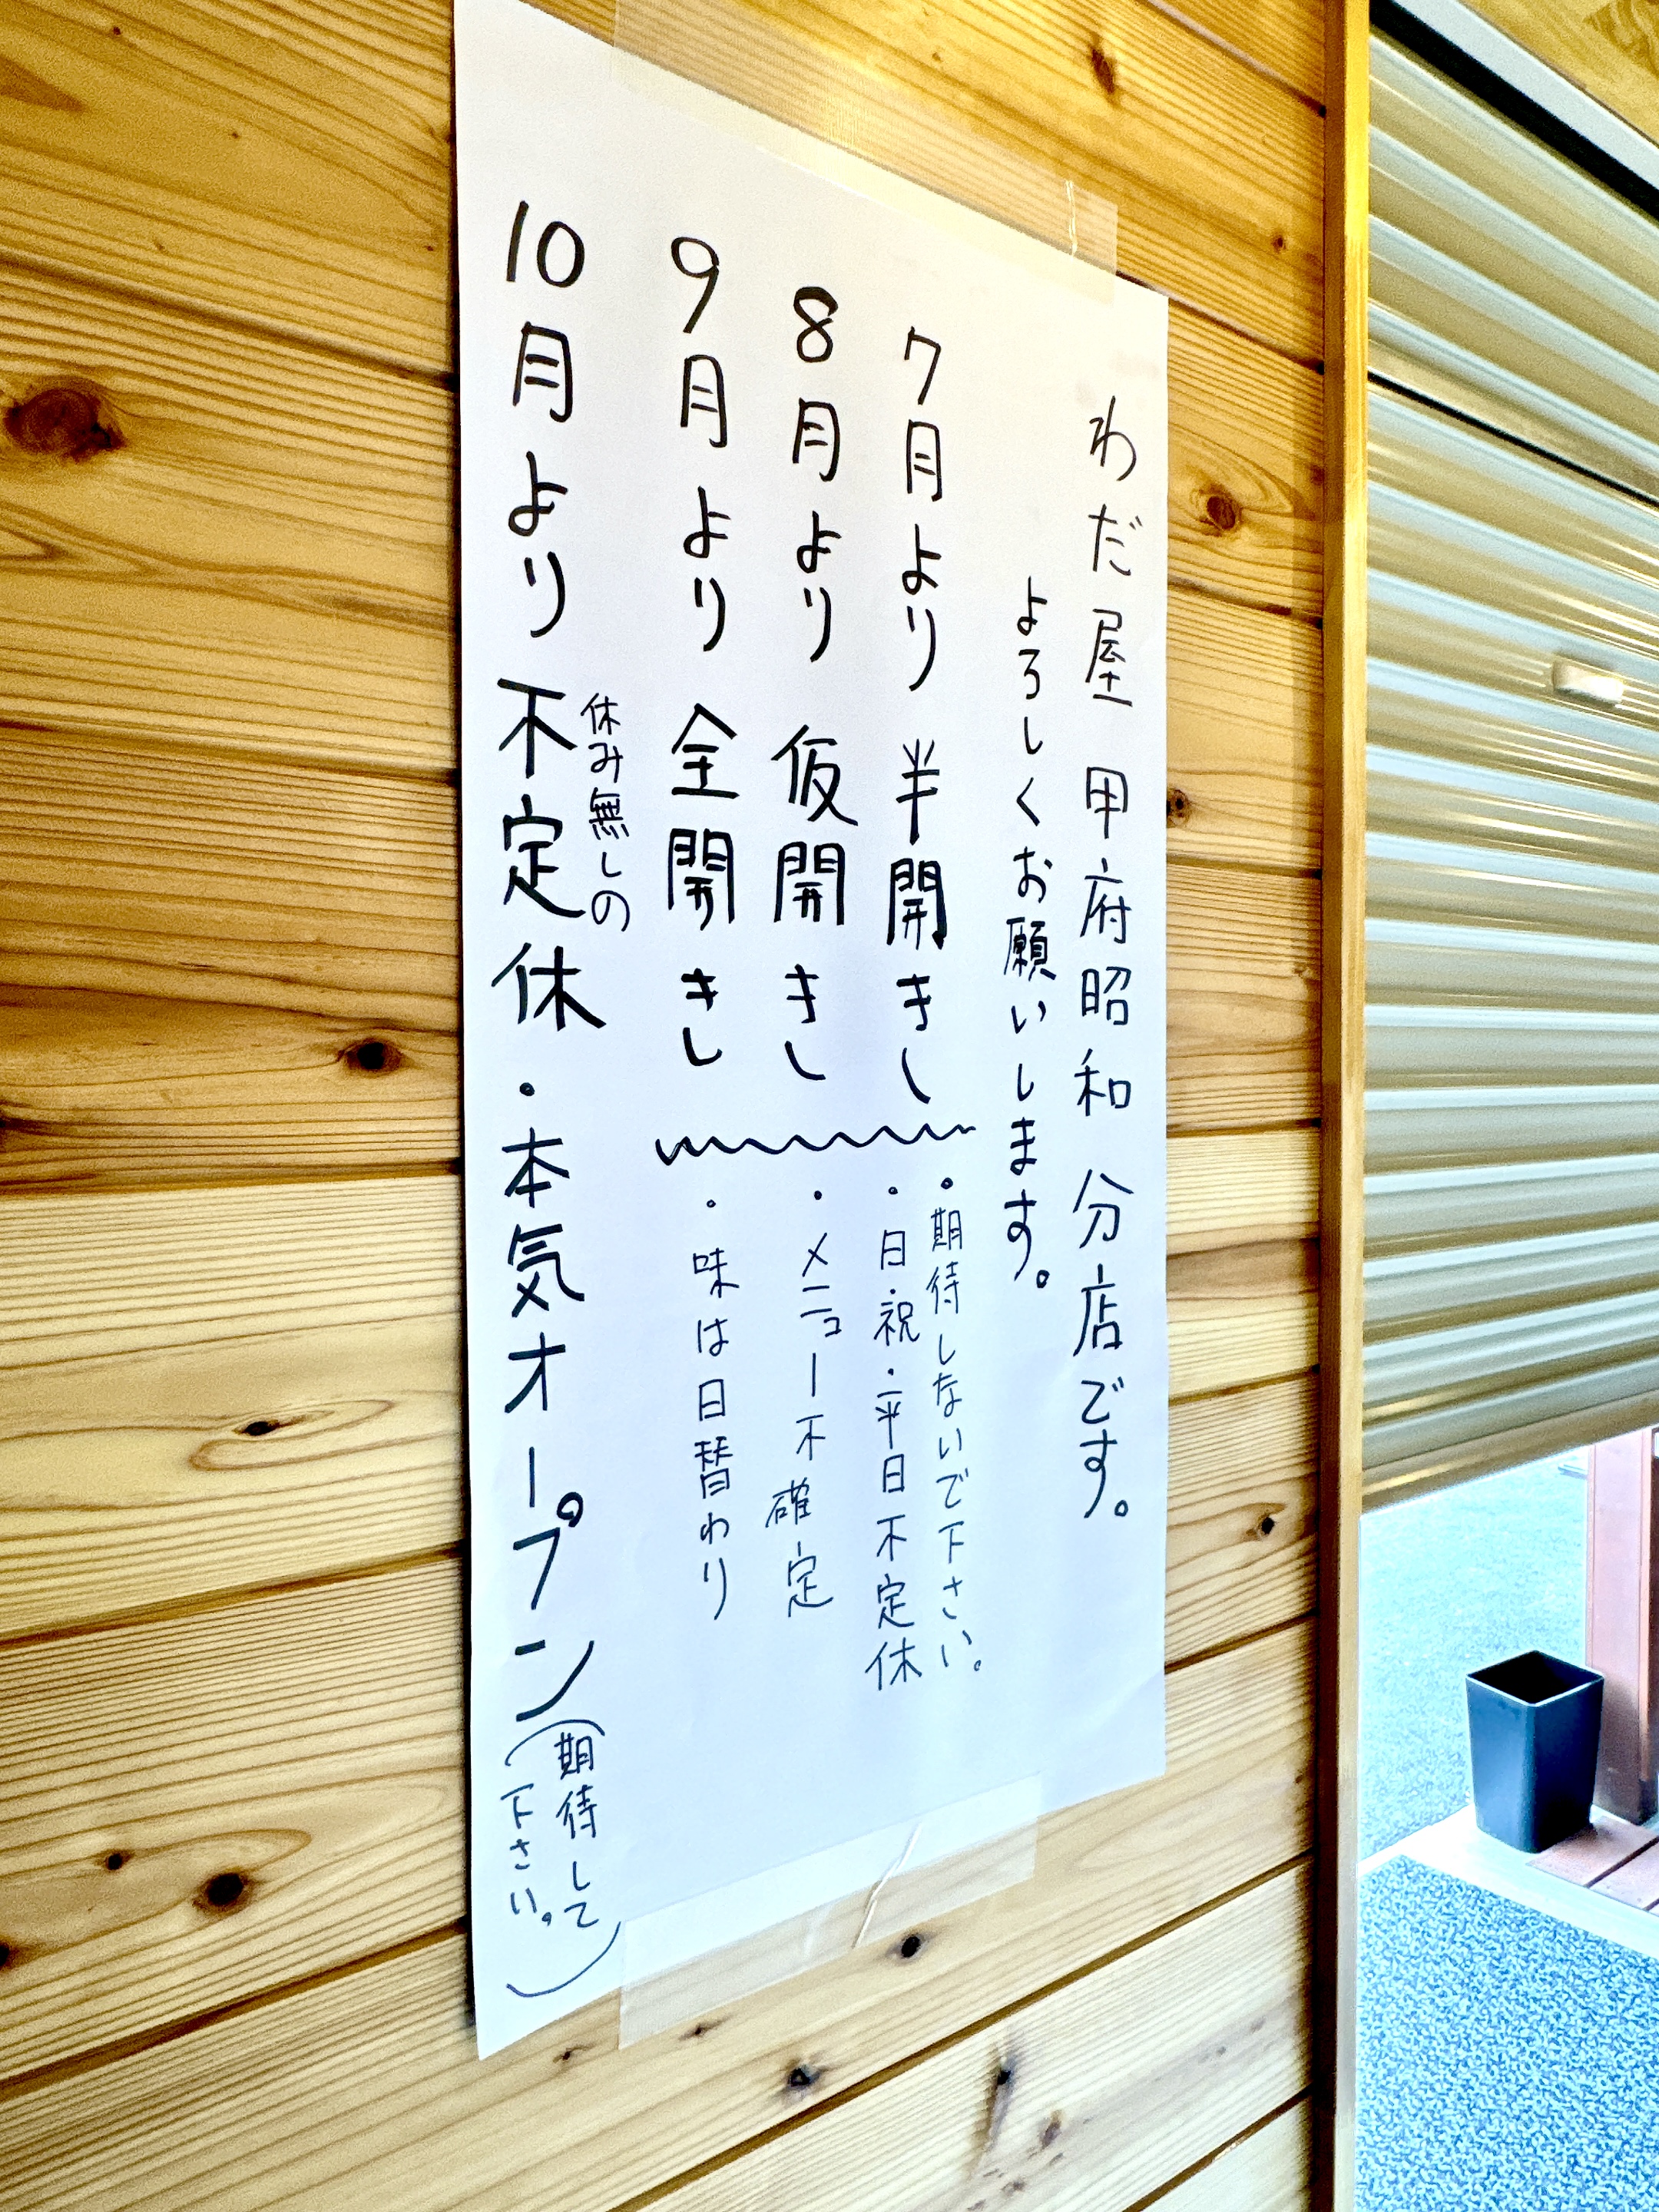 わだ屋 甲府昭和 分店です。
よろしくお願いします。
7月より 半開きし
8月より 仮開きし
9月より 全開きし
・期待しないで下さい。
・日・祝・平日不定休
・メニュー不確定
・味は日替わり
休み無しの
10月より不定休・本気オープン
(期待して
下さい。)